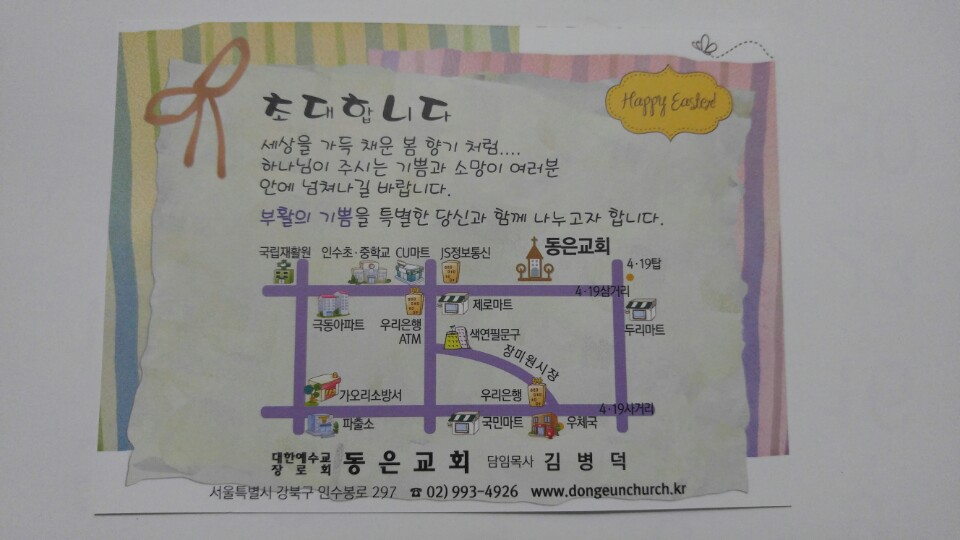 초대합니다
Happy Easter!
세상을 가득 채운 봄 향기 처럼....
하나님이 주시는 기쁨과 소망이 여러분
안에 넘쳐나길 바랍니다.
부활의 기쁨을 특별한 당신과 함께 나누고자 합니다.
국립재활원 인수초·중학교 CU마트 JS정보통신 동은교회
4·19탑
4·19삼거리
극동아파트 우리은행 ATM 제로마트 두리마트
색연필문구
장미원시장
가오리소방서 우리은행
4·19사거리
파출소 국민마트 우체국
대한예수교
장로회 동은교회 담임목사 김병덕
서울특별시 강북구 인수봉로 297 ☎ 02) 993-4926 www.dongeunchurch.kr